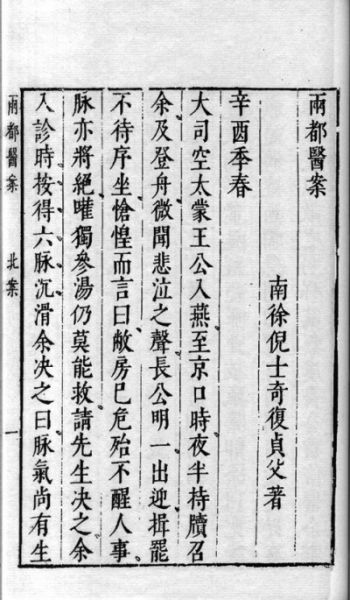 兩都醫案
南徐倪士奇復貞父著
辛酉季春
大司空太蒙王公入燕至京口時夜半持牘召
余及登舟微聞悲泣之聲長公明一出迎揖罷
不待序坐愴惶而言曰敝房已危殆不醒人事
脉亦將絕嗺獨參湯仍莫能救請先生决之余
入診時按得六脉沉滑余决之曰脉氣尚有生
兩都醫案 北案 一